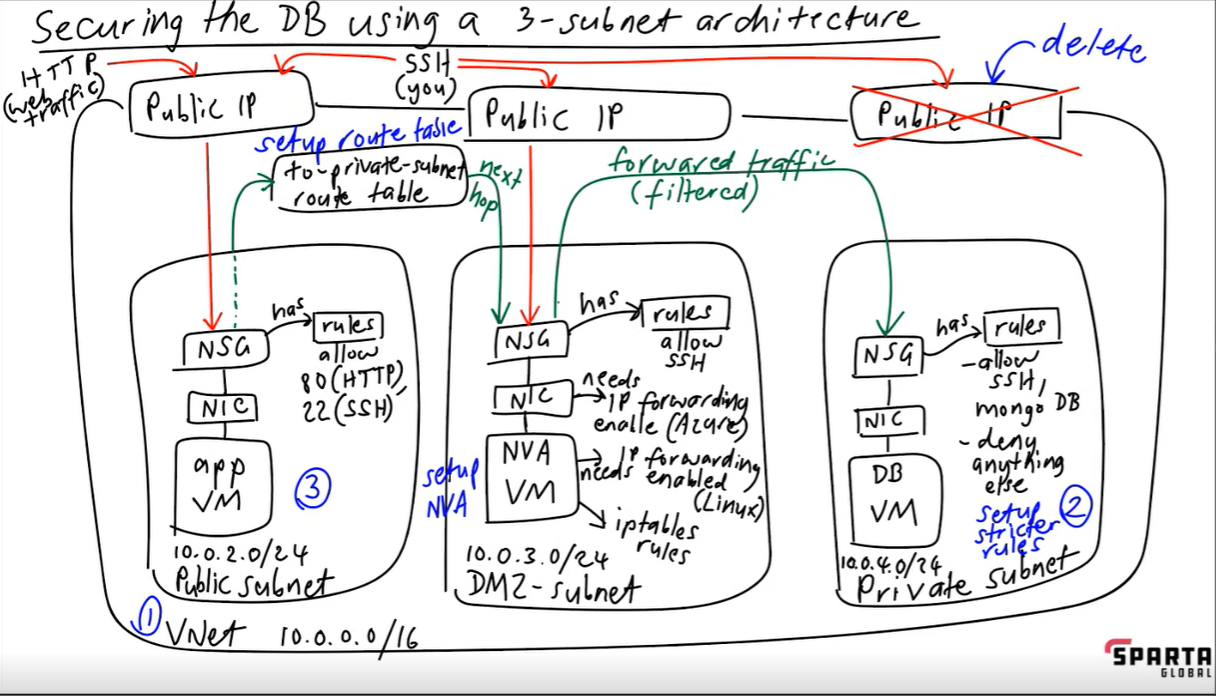 Securing the DB using a 3-subnet architecture
HTTP
(web
traffic)
SSH
(you)
delete
Public IP
Public IP
Public IP
setup route table
to-private-subnet
route table
next
hop
forwared traffic
(filtered)
NSG
has
rules
allow
80 (HTTP),
22 (SSH)
NIC
app
VM
3
10.0.2.0/24
Public subnet
NSG
has
rules
allow
SSH
NIC
needs
IP forwarding
enable (Azure)
setup
NVA
NVA
VM
needs IP forwarding
enabled
(Linux)
iptables
rules
10.0.3.0/24
DMZ-subnet
NSG
has
rules
-allow
SSH,
mongo DB
- deny
anything
else
NIC
DB
VM
setup
stricter
rules
2
10.0.4.0/24
Private subnet
1
VNet 10.0.0.0/16
SPARTA
GLOBAL